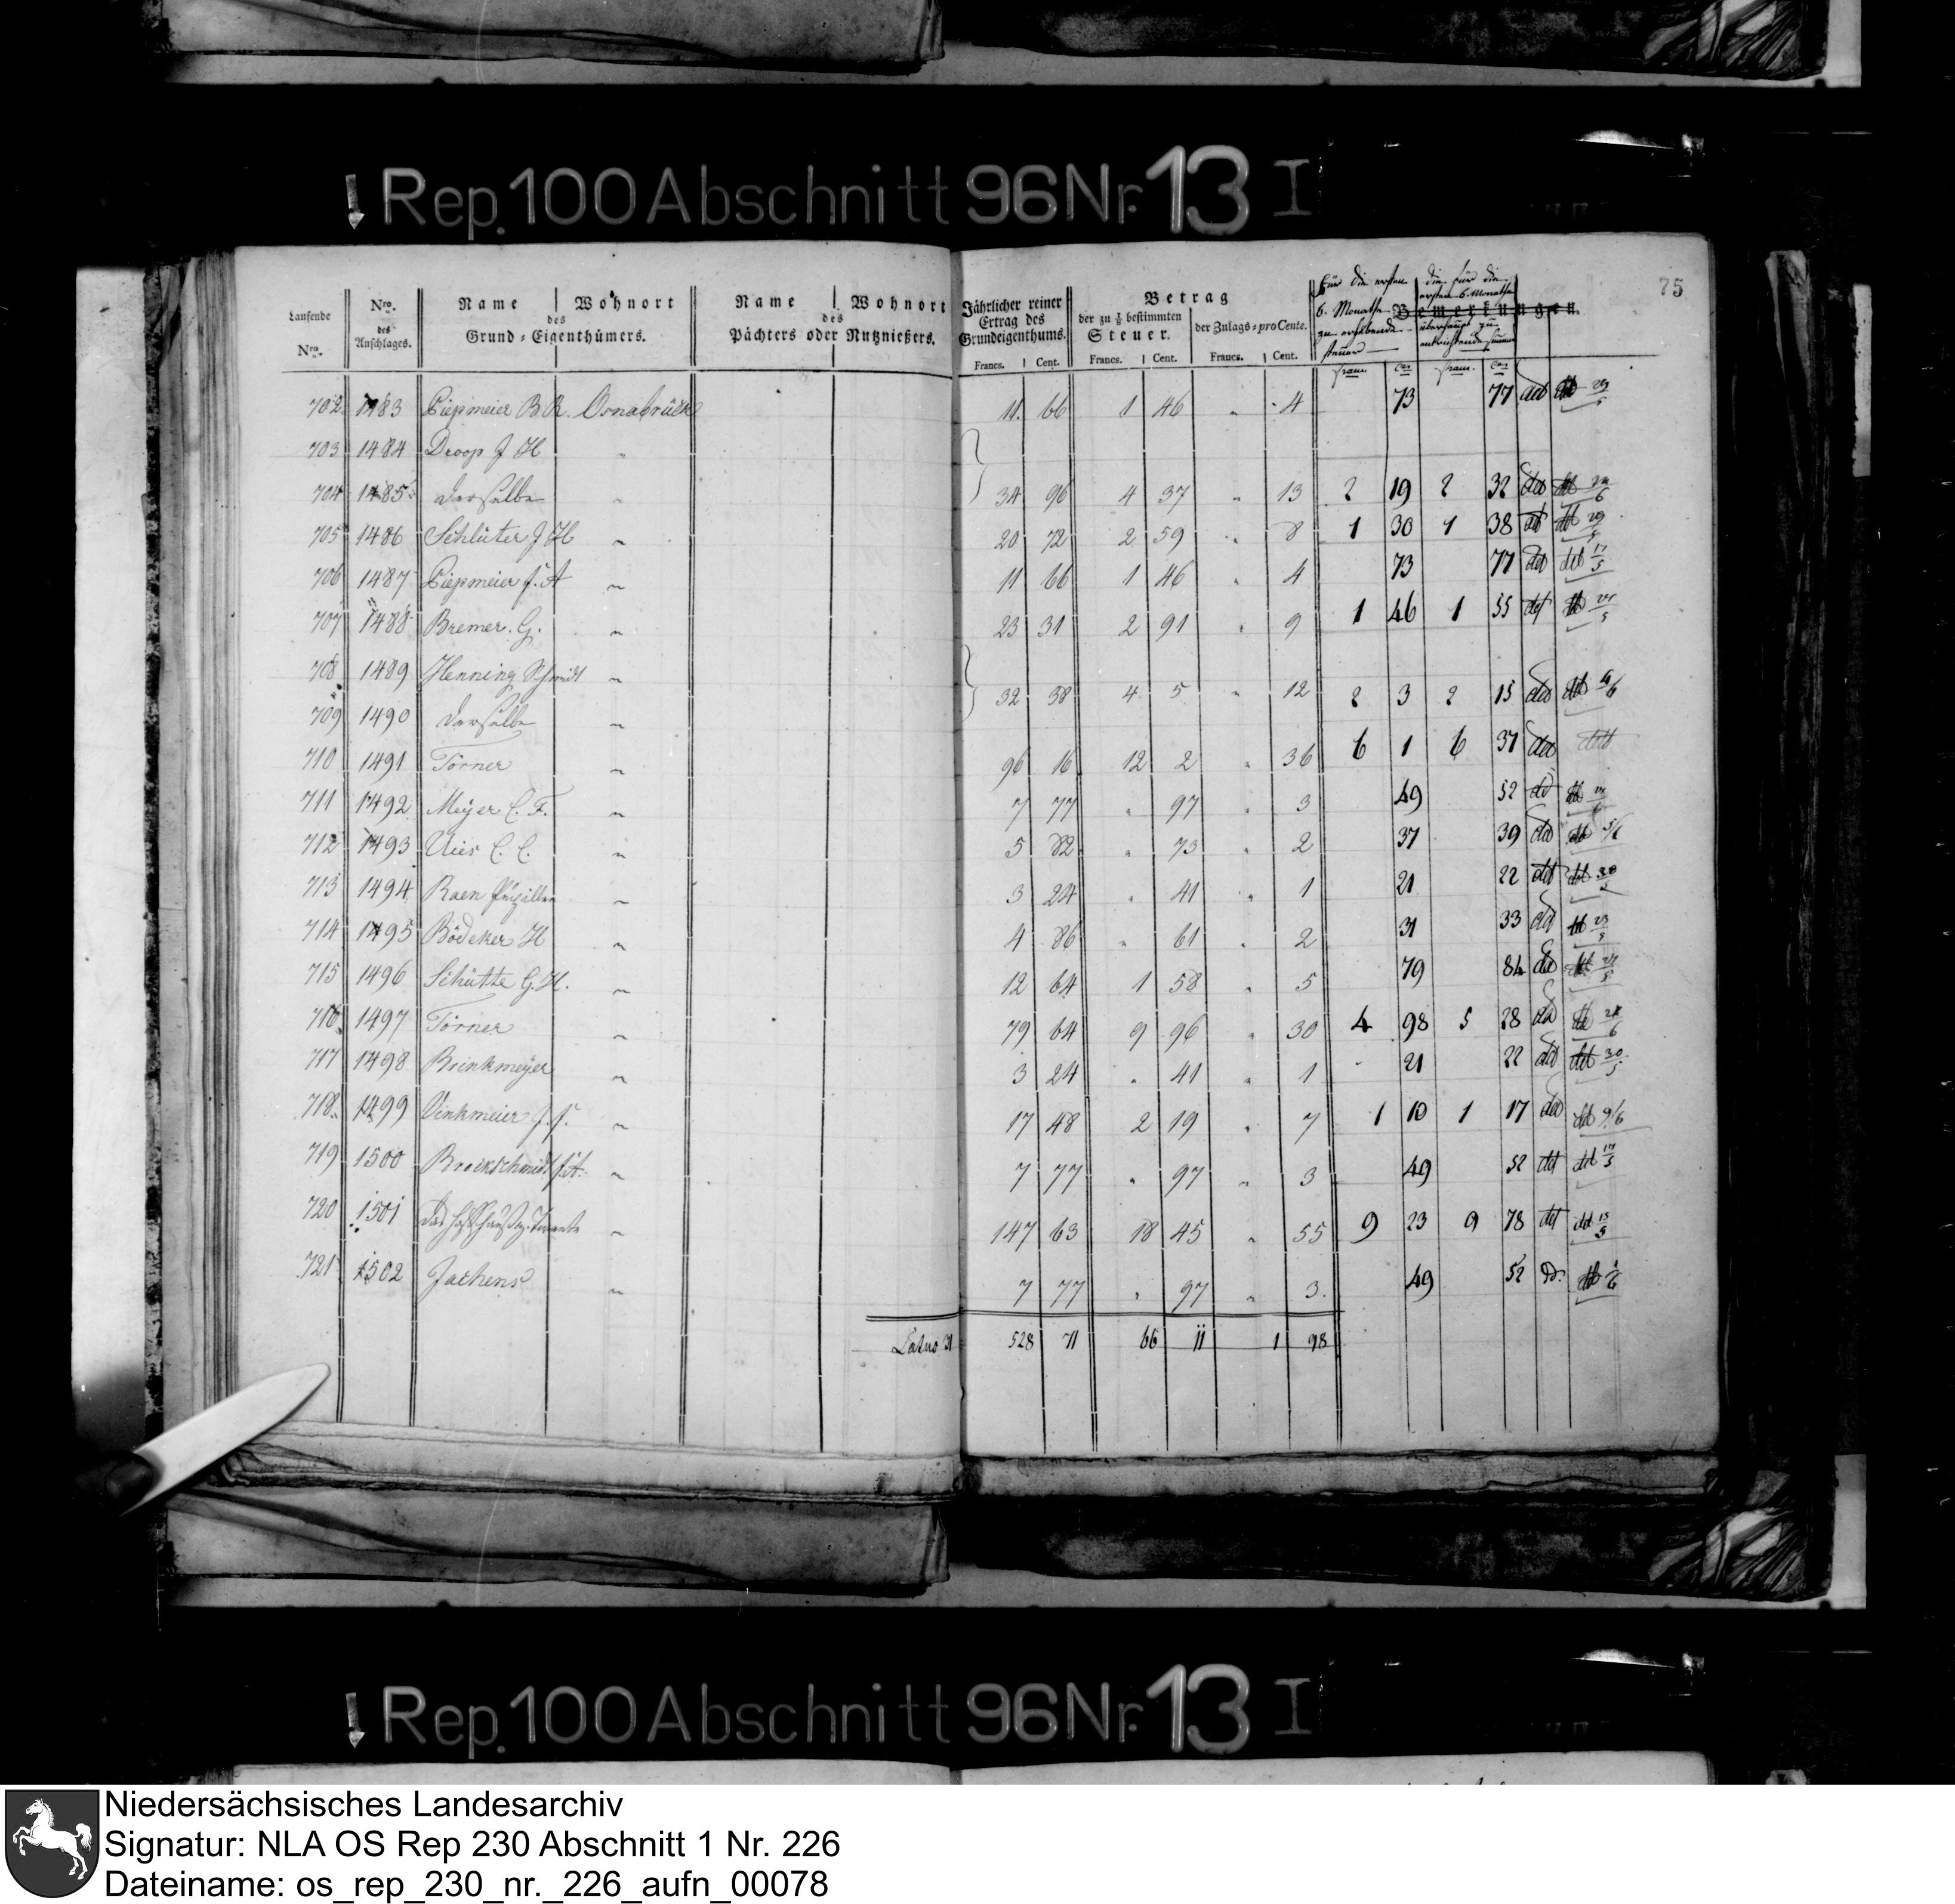 Rep. 100 Abschnitt 96 Nr. 13 I
75
Laufende Nro. | Nro. des Anschlages. | Name des Grund-Eigenthümers. Wohnort | Name des Pächters oder Nutznießers. Wohnort | Jährlicher reiner Ertrag des Grundeigenthums. | Betrag der zu ⅛ bestimmten Steuer. | der Zulags-pro Cente. | Für die ersten 6. Monathe zu erhebende Steuer | die für die ersten 6. Monathe überhaupt zu entrichtende Summe | Bemerkungen.
Francs. | Cent. | Francs. | Cent. | Francs. | Cent. | Franc. | Cen | Franc. | Cen
702 1483 Piepmeier Osnabrück 11 66 1 46 " 4 73 77
703 1484 Droop J H "
704 1485 derselbe " 34 96 4 37 " 13 2 19 2 32
705 1486 Schlüter J H " 20 72 2 59 " 8 1 30 1 38
706 1487 Piepmeier F. A " 11 66 1 46 " 4 73 77
707 1488 Bremer. G. " 23 31 2 91 " 9 1 46 1 55
708 1489 Henning Schmidt "
709 1490 derselbe " 32 38 4 5 " 12 2 3 2 15
710 1491 Törner " 96 16 12 2 " 36 6 1 6 37
711 1492 Meyer C. F. " 7 77 " 97 " 3 49 52
712 1493 C. C. " 5 82 " 73 " 2 37 39
713 1494 Raen " 3 24 " 41 " 1 21 22
714 1495 Bödeker H " 4 86 " 61 " 2 31 33
715 1496 Schütte G. H. " 12 64 1 58 " 5 79 84
716 1497 Törner " 79 64 9 96 " 30 4 98 5 28
717 1498 Brinkmeyer " 3 24 " 41 " 1 21 22
718 1499 Vinkmeier J. F. " 17 48 2 19 " 7 1 10 1 17
719 1500 Brockschmidt F. A. " 7 77 " 97 " 3 49 52
720 1501 " 147 63 18 45 " 55 9 23 9 78
721 1502 Jathens " 7 77 " 97 " 3. 49 52
Latus 528 71 66 11 1 98
Rep. 100 Abschnitt 96 Nr. 13 I
Niedersächsisches Landesarchiv
Signatur: NLA OS Rep 230 Abschnitt 1 Nr. 226
Dateiname: os_rep_230_nr._226_aufn_00078